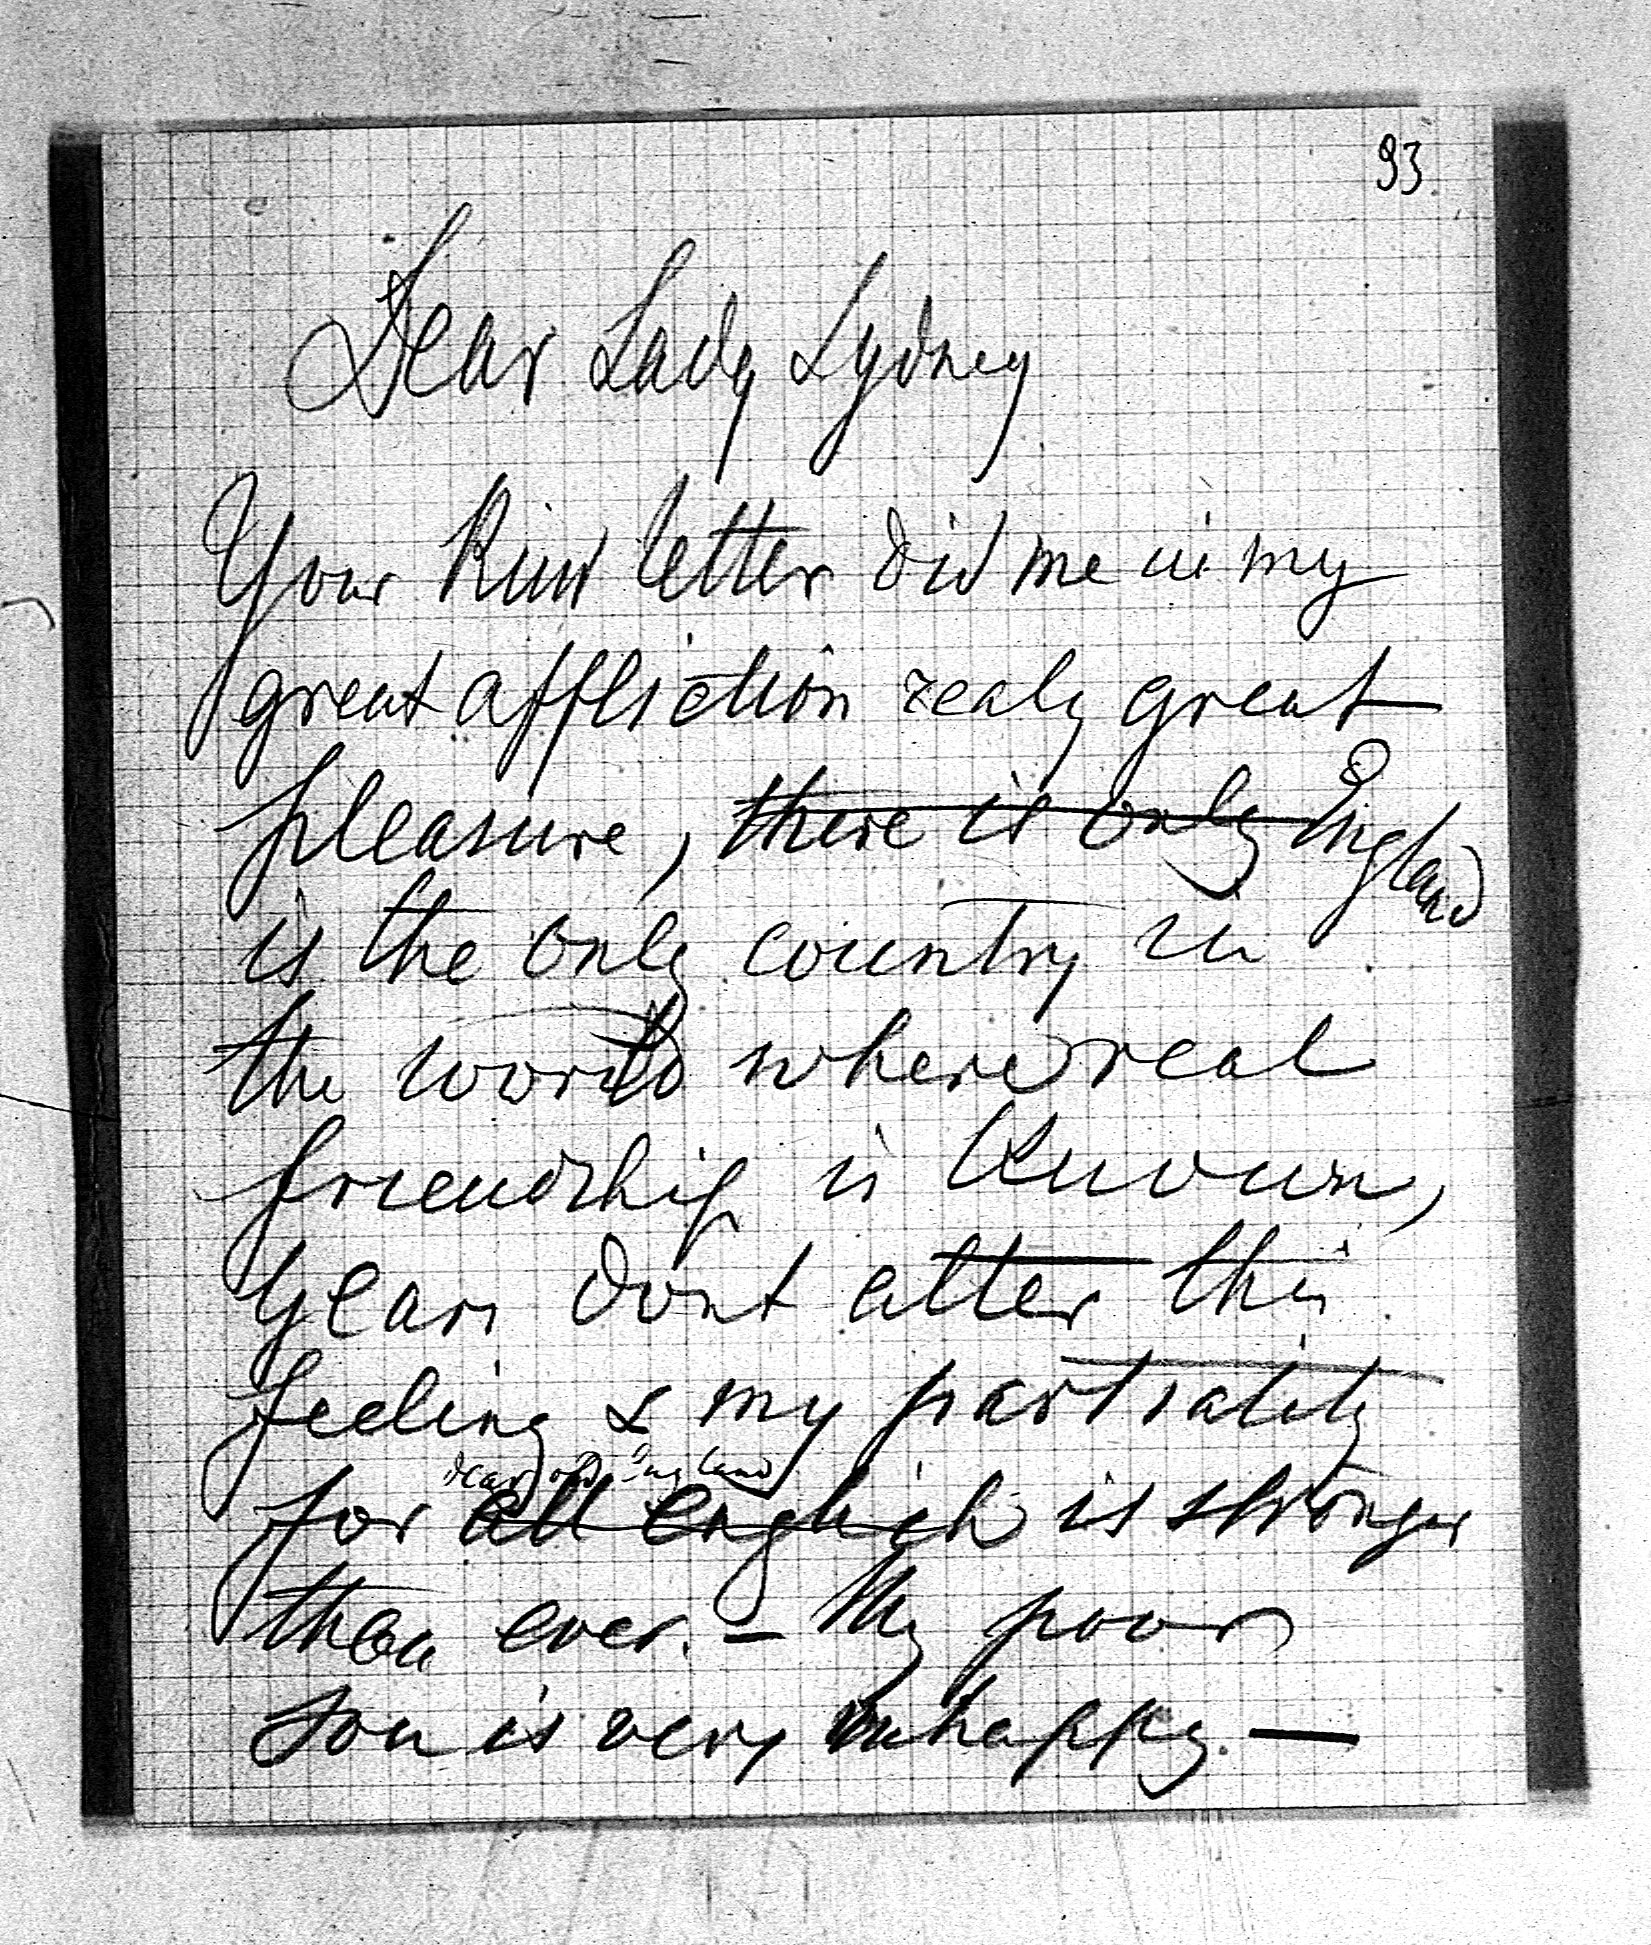 93
Dear Lady Sydney
Your kind letter did me in my
great affliction realy great
pleasure, there is only England
is the only country in
the world where real
friendship is known,
years dont alter this
feeling & my partiality
dear old England
for all english is stronger
than ever. – My poor
son is very unhappy. —